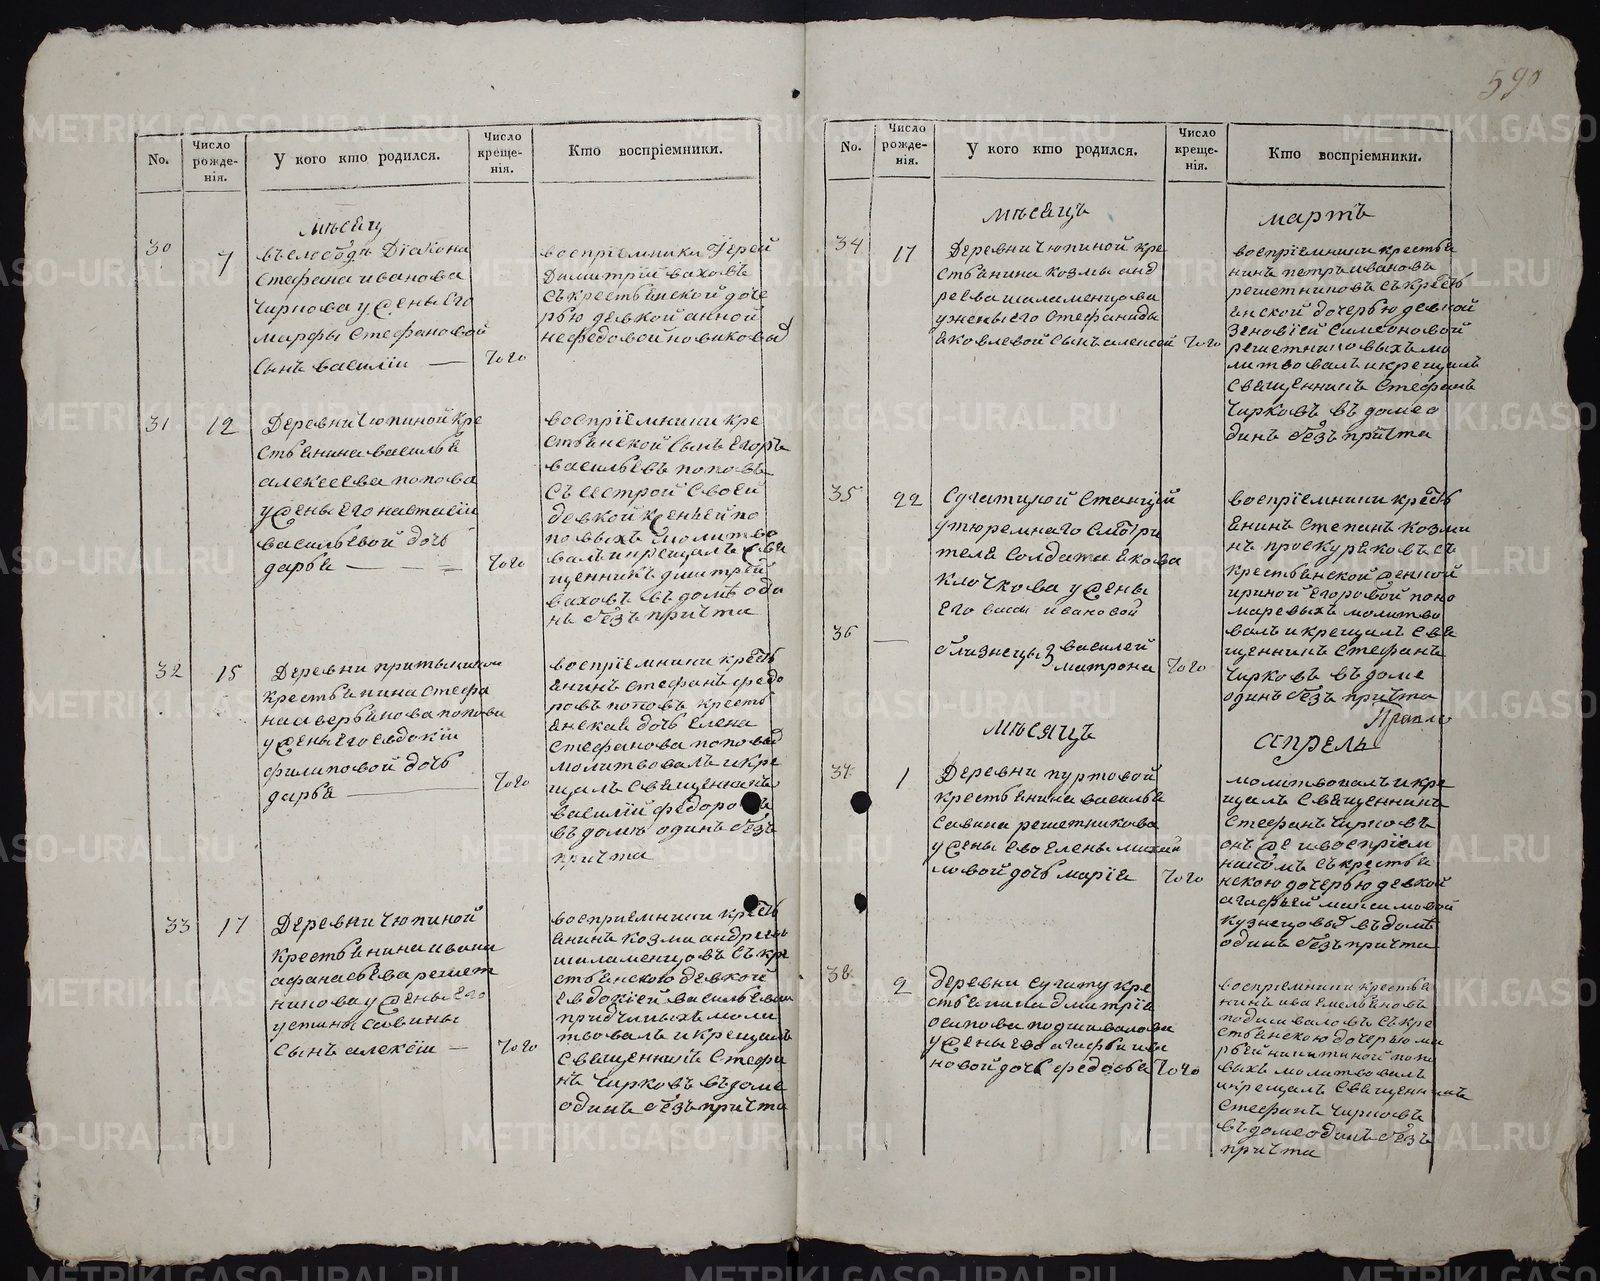 590
No.
Число рожде-нія.
У кого кто родился.
Число креще-нія.
Кто воспріемники.
мѣсяцъ
30
7
въ слободѣ Діакона
Стефана иванова
Чиркова у жены его
марфы Стефановой
Сынъ василіи —
Того
воспріемники Іерей
Димитріи ваховъ
съ крестьянской доче
рью девкой анной
нефедовой новиковых
31
12
Деревни Чюпиной кре
стьянина василья
алексеева попова
у жены его настасіи
васильевой дочь
дарья — — =
Того
воспріемники кре
стьянской сынъ Егоръ
васильевъ поповъ
съ сестрой своей
девкой ксеньей по
повыхъ молитво
валъ и крещалъ Свя
щенникъ дмитрей
ваховъ въ доме оди
нъ безъ причта
32
15
Деревни
крестьянина Стефа
на аверьянова попова
у жены его евдокіи
филиповой дочь
дарья —
Того
воспріемники кресть
янинъ стефанъ федо
ровъ поповъ кресть
янская дочь елена
стефанова поповых
молитвовалъ и кре
щалъ Священникъ
василій федоровъ
въ доме одинъ безъ
причта
33
17
Деревни Чюпиной
крестьянина ивана
афанасьева решет
никова у жены его
устиньи савины
сынъ алексіи —
Того
воспріемники кресть
янинъ козма андреевъ
шаламенцовъ съ кре
стьянскою девкой
евдокіей васильевой
моли
твовалъ и крещалъ
Священникъ Стефа
нъ Чирковъ въ доме
одинъ безъ причта
No.
Число рожде-нія.
У кого кто родился.
Число креще-нія.
Кто воспріемники.
мѣсяцъ
мартъ
34
17
Деревни Чюпиной кре
стьянина козмы анд
реева шаламенцова
у жены его Стефаниды
яковлевой сынъ алексей
Того
воспріемники крестья
нинъ петръ ивановъ
решетниковъ съ кресть
янской дочерью девкой
зеновіей Симеоновой
решетниковыхъ мо
литвовалъ и крещалъ
священникъ Стефанъ
Чирковъ въ доме о
динъ безъ причта
35
22
Сугатцкой Станціи
у тюремнаго Смотри
теля солдата якова
клочкова у жены
его васы ивановой
36
—
близнецы василей
матрона
Того
воспріемники кресть
янинъ Степанъ козми
нъ проскуряковъ съ
крестьянской женкой
ириной егоровой поно
маревыхъ молитво
валъ и крещалъ Свя
щенникъ Стефанъ
Чирковъ въ доме
одинъ безъ причта
мѣсяцъ
апрель
37
1
Деревни пуртовой
крестьянина василья
Савина решетникова
у жены его елены михай
ловой дочь маріа
Того
молитвовалъ и кре
щалъ Священникъ
Стефанъ Чирковъ
онъ же и воспріем
никомъ съ крестья
нскою дочерью девкой
агафьей максимовой
кузнецовых въ доме
одинъ безъ причта
38
2
Деревни Сугату кре
стьянина дмитріа
осипова подшивалова
у жены его агафьи ива
новой дочь федосья
Того
воспріемники крестья
нинъ ива емельяновъ
подшиваловъ съ кре
стьянскою дочерью ма
рьей никитиной попо
выхъ молитвовалъ
и крещалъ Священникъ
Стефанъ Чирковъ
въ доме одинъ безъ
причта